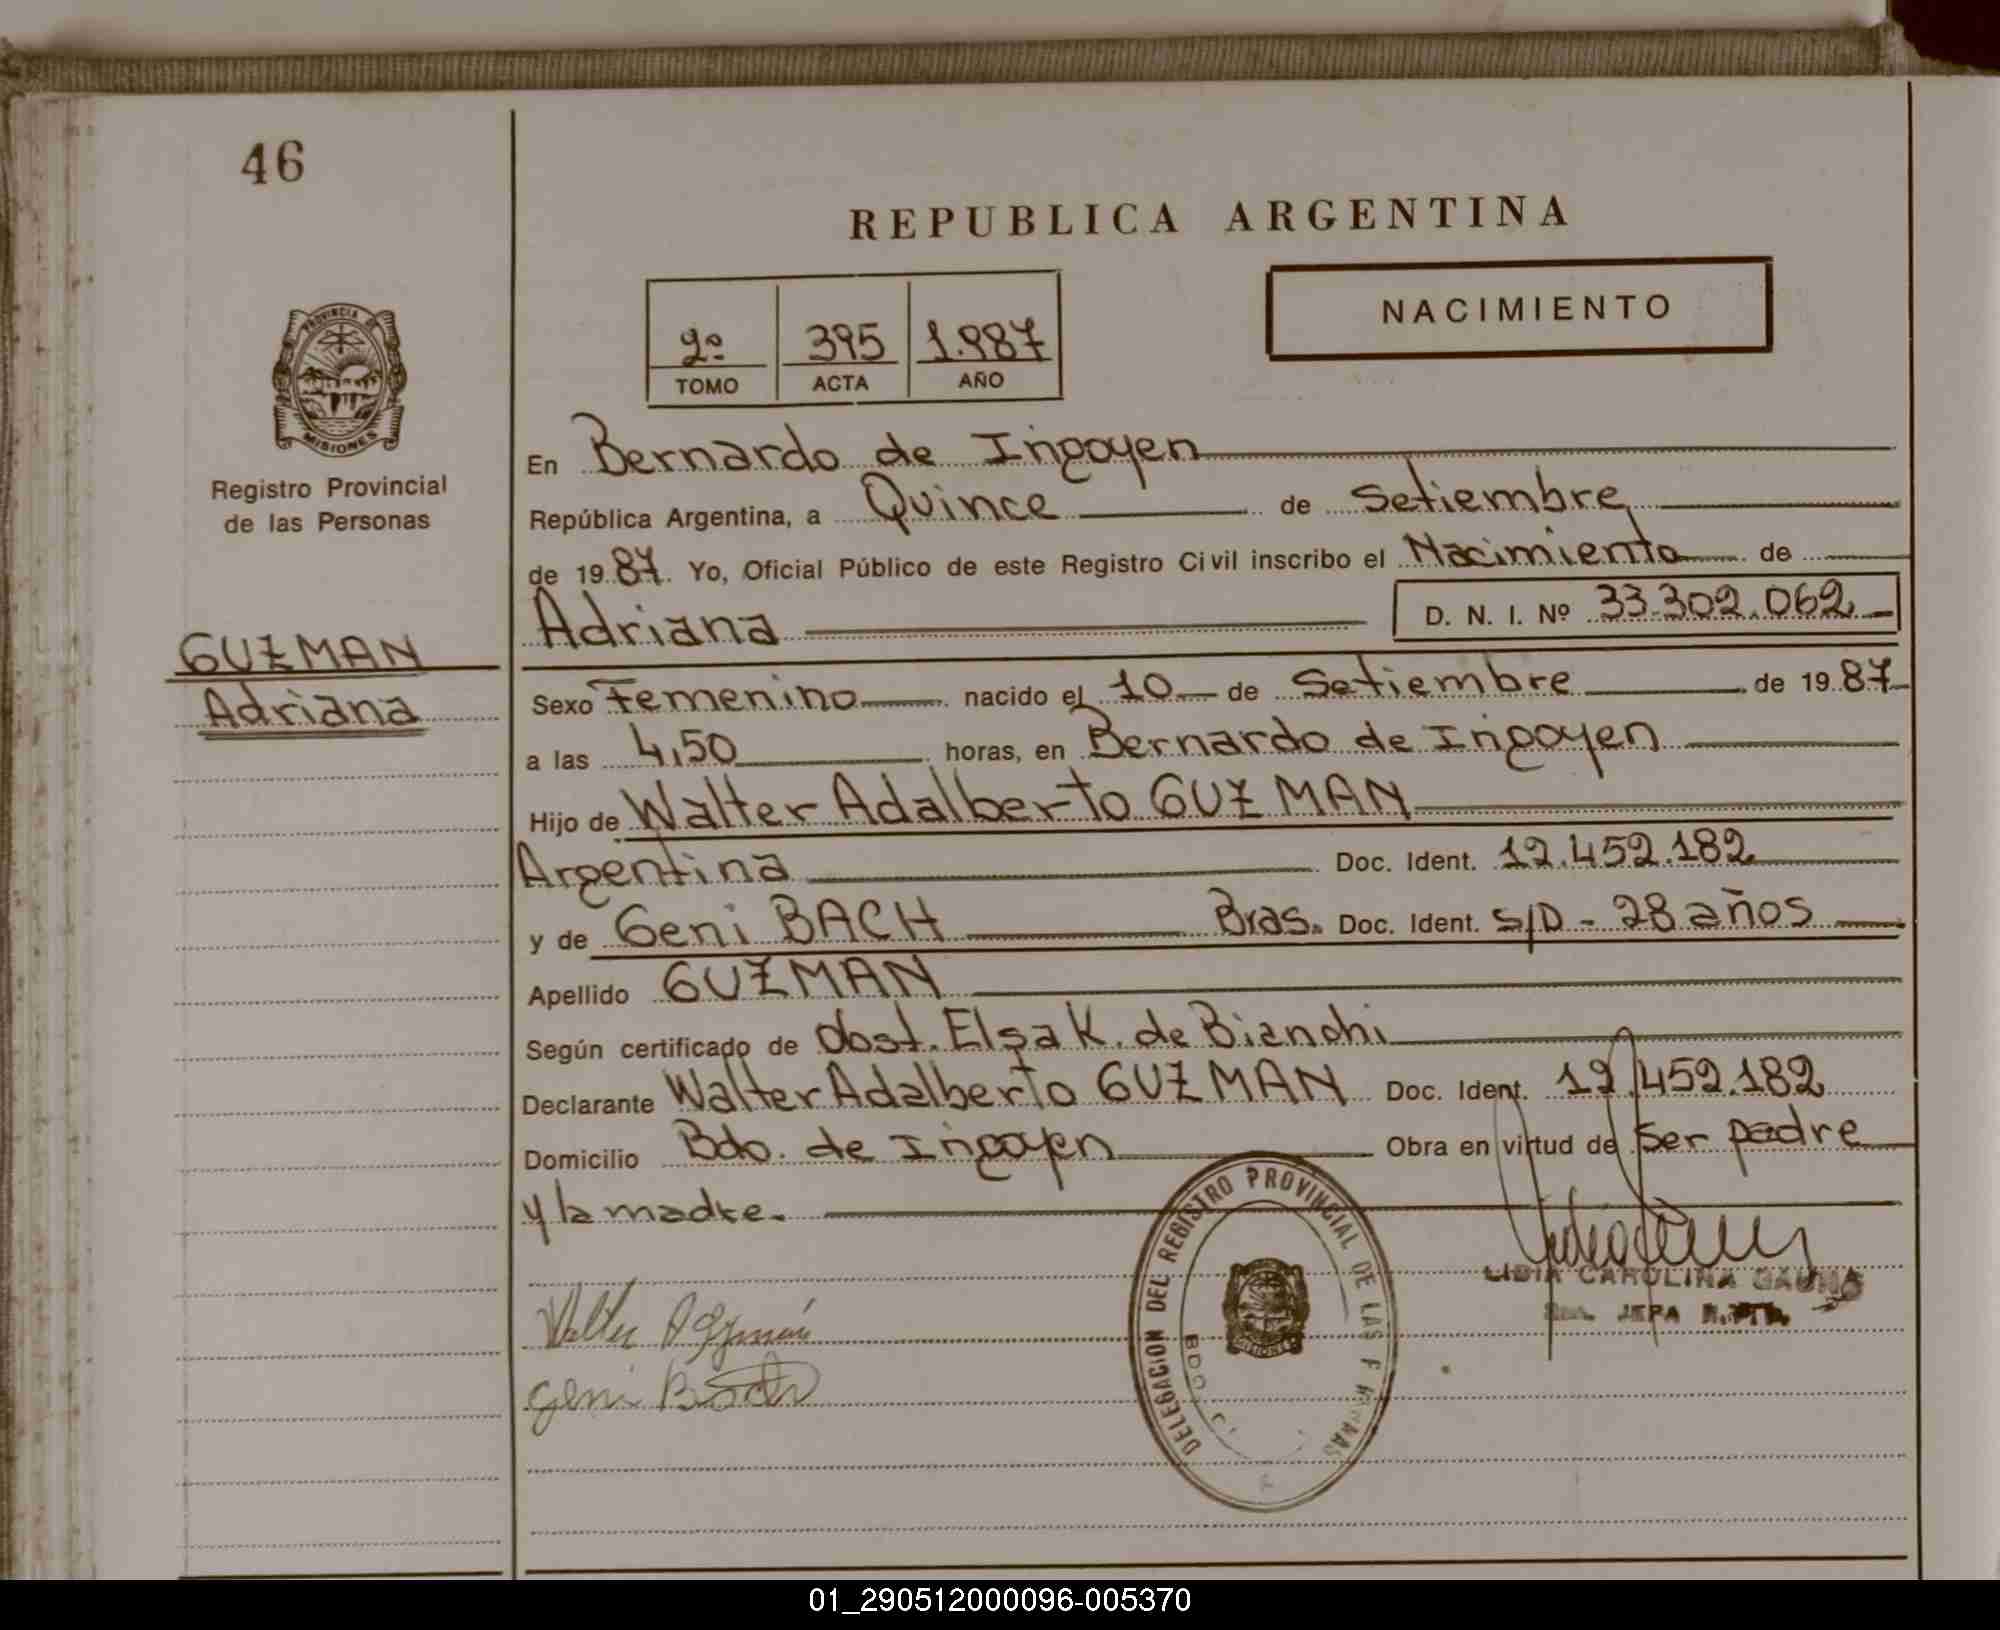 46
REPUBLICA ARGENTINA
NACIMIENTO
2º 395 1.987
TOMO ACTA AÑO
PROVINCIA DE
MISIONES
Registro Provincial
de las Personas
GUZMAN
Adriana
En Bernardo de Irigoyen
República Argentina, a Quince de Setiembre
de 1987. Yo, Oficial Público de este Registro Civil inscribo el Nacimiento de
Adriana D. N. I. Nº 33.302.062
Sexo Femenino nacido el 10 de Setiembre de 1987
a las 4,50 horas, en Bernardo de Irigoyen
Hijo de Walter Adalberto GUZMAN
Argentina Doc. Ident. 12.452.182
y de Geni BACH Bras. Doc. Ident. S/D - 28 años
Apellido GUZMAN
Según certificado de Obst. Elsa K. de Bianchi
Declarante Walter Adalberto GUZMAN Doc. Ident. 12.452.182
Domicilio Bdo. de Irigoyen Obra en virtud de ser padre
y la madre.
DELEGACION DEL REGISTRO PROVINCIAL DE LAS
BDO
MISIONES
LIDIA CAROLINA GAUNA
JEFA
Geni Bach
01_290512000096-005370